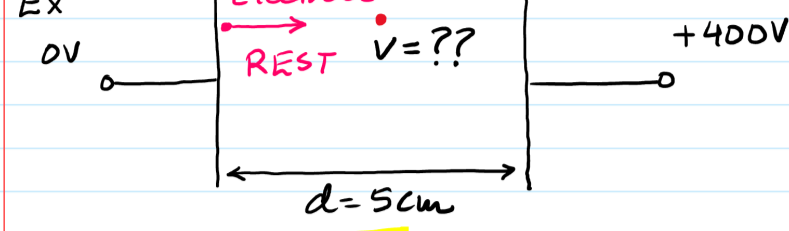 Ex
0V
REST
v=??
+400V
d=5cm